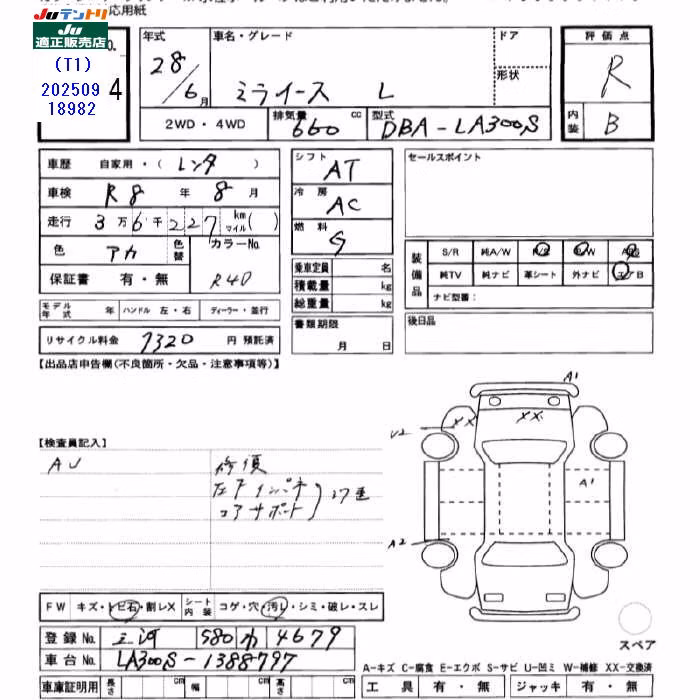 応用紙
JUテントリ
JU適正販売店
(T1)
202509
18982
No.
4
年式 車名・グレード ドア 評価点
28/6月 ミライース L 形状 R
2WD・4WD 排気量 660 cc 型式 DBA-LA300S 内装 B
車歴 自家用・(レンタ)
車検 R8年 8月
走行 3万6千227 km マイル( )
色 アカ 色替 カラーNo. R40
保証書 有・無
シフト AT
冷房 AC
燃料 G
乗車定員 名
積載量 kg
総重量 kg
セールスポイント
装備品 S/R 純A/W P/S P/W A/B
純TV 純ナビ 革シート 外ナビ エアB
ナビ型番:
モデル年式 年 ハンドル 左・右 ディーラー・並行
リサイクル料金 7320 円 預託済
書類期限 月 日
後日品
【出品店申告欄(不良箇所・欠品・注意事項等)】
A1
XX XX
U2
A1
A2
【検査員記入】
AU
修復
コアサポート
FW キズ・トビ石・割レX シート内装 コゲ・穴・汚レ・シミ・破レ・スレ
登録No. 三河 580 4679
車台No. LA300S-1388797
車庫証明用 長さ cm 幅 cm 高さ cm
スペア
A-キズ C-腐食 E-エクボ S-サビ U-凹ミ W-補修 XX-交換済
工具 有・無 ジャッキ 有・無